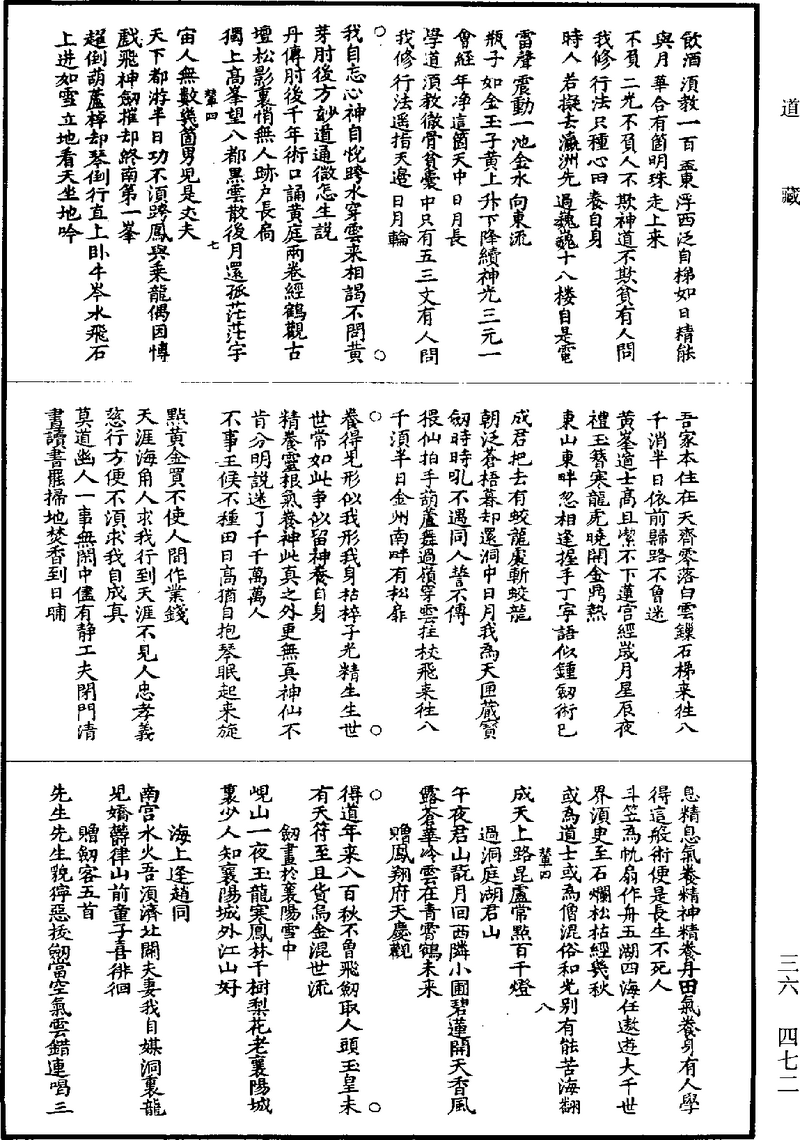 道藏
飲酒須教一百盃東浮西泛自梯如日精能
與月華合有箇明珠走上來
不負二光不負人不欺神道不欺貧有人問
我修行法只種心田養自身
時人若擬去瀛洲先過巍巍十八樓自是電
雷聲震動一池金水向東流
瓶子如金玉子黃上升下降續神光三元一
會經年淨這箇天中日月長
學道須教徹骨貧囊中只有五三文有人問
我修行法遥指天邊日月輪
我自忘心神自悅跨水穿雲来相謁不問黃
芽肘後方妙道通微怎生說
丹傳肘後千年術口誦黃庭兩卷經鶴觀古
壇松影裏悄無人跡戶長扃
獨上高峯望八都黑雲散後月還孤茫茫宇
輦四
七
宙人無數幾箇男兒是丈夫
天下都游半日功不須跨鳳與乘龍偶因博
戲飛神劔摧却終南第一峯
趐倒葫蘆掉却琴倒行直上卧牛岑水飛石
上迸如雪立地看天坐地吟
吾家本住在天齊零落白雲鏁石梯来往八
千消半日依前歸路不曾迷
黃峯道士高且潔不下蓮宫經歲月星辰夜
禮玉簪寒龍虎曉開金鼎熱
東山東畔忽相逢握手丁寧語似鍾劔術已
成君把去有蛟龍處斬蛟龍
朝泛蒼梧暮却還洞中日月我為天匣藏寳
劔時時吼不遇同人誓不傳
偎仙拍手葫蘆舞過嶺穿雲拄杖飛来往八
千須半日金州南畔有松扉
養得兒形似我形我身枯悴子光精生生世
世常如此爭似留神養自身
精養靈根氣養神此真之外更無真神仙不
肯分明說迷了千千萬萬人
不事王候不種田日高猶自抱琴眠起来旋
點黃金買不使人間作業錢
天涯海角人求我行到天涯不見人忠孝義
慈行方便不須求我自成真
莫道幽人一事無閑中儘有静工夫閉門清
晝讀書罷掃地焚香到日晡
息精息氣養精神精養丹田氣養身有人學
得這般術便是長生不死人
斗笠為帆扇作舟五湖四海任遨遊大千世
界須臾至石爛松枯經幾秋
或為道士或為僧混俗和光别有能苦海翻
輦四
八
成天上路毘盧常點百千燈
過洞庭湖君山
午夜君山翫月回西隣小圃碧蓮開天香風
露蒼華冷雲在青霄鶴未来
贈鳳翔府天慶觀
得道年来八百秋不曽飛劔取人頭玉皇未
有天符至且貨烏金混世流
劔畫於襄陽雪中
峴山一夜玉龍寒鳳林千樹梨花老襄陽城
裏少人知襄陽城外江山好
海上逢趙同
南宫水火吾須濟北闕夫妻我自媒洞裏龍
兒嬌鬱律山前童子喜徘徊
贈劔客五首
先生先生貌獰惡拔劔當空氣雲錯連喝三
三六
四七二